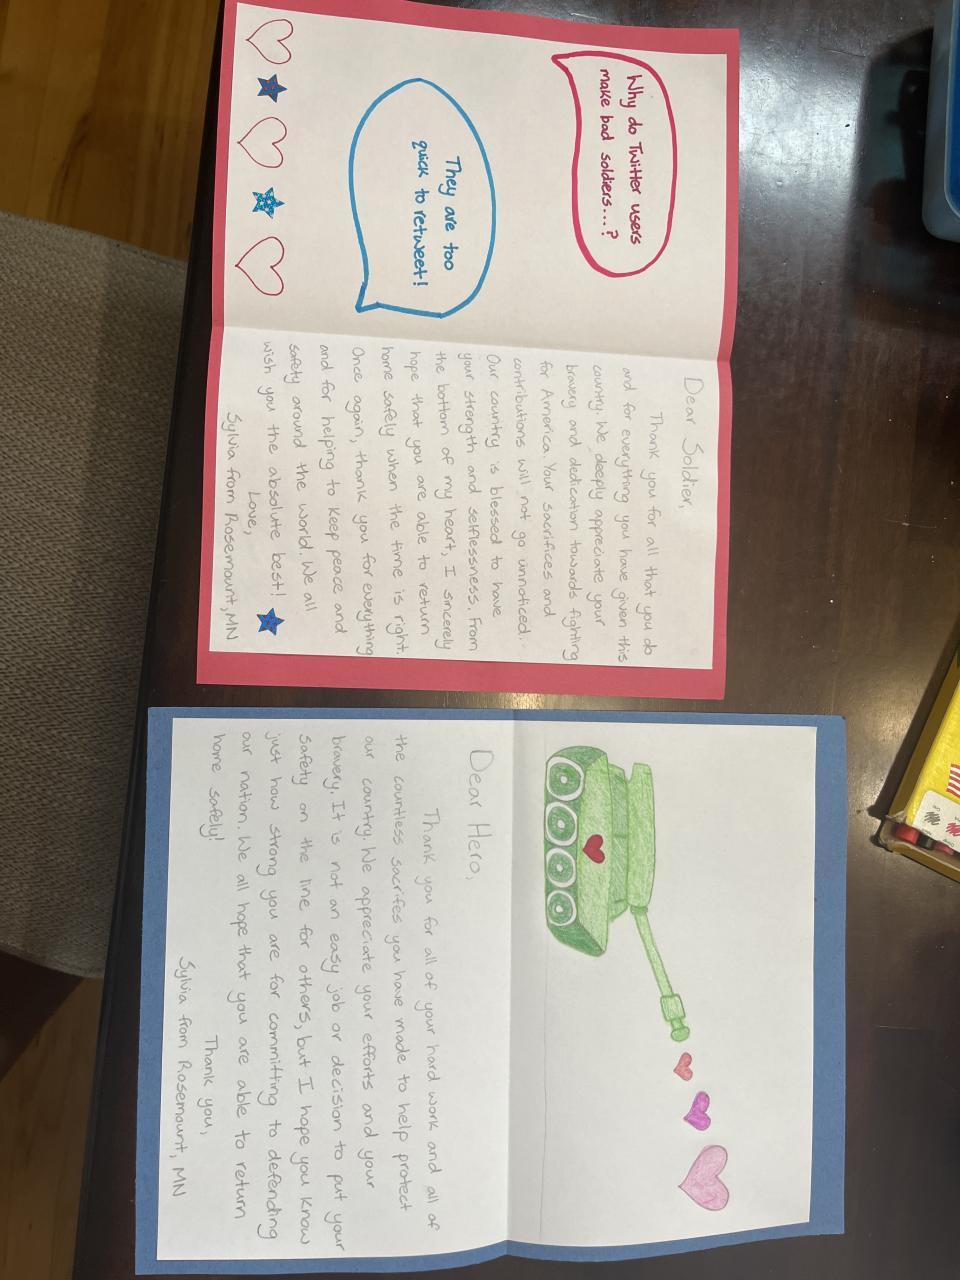 Why do Twitter users
make bad soldiers...?
They are too
quick to retweet!
Dear Soldier,
Thank you for all that you do
and for everything you have given this
country. We deeply appreciate your
bravery and dedication towards fighting
for America. Your sacrifices and
contributions will not go unnoticed.
Our country is blessed to have
your strength and selflessness. From
the bottom of my heart, I sincerely
hope that you are able to return
home safely when the time is right.
Once again, thank you for everything
and for helping to keep peace and
safety around the world. We all
wish you the absolute best!
Love,
Sylvia from Rosemount, MN
Dear Hero,
Thank you for all of your hard work and all of
the countless sacrifes you have made to help protect
our country. We appreciate your efforts and your
bravery. It is not an easy job or decision to put your
safety on the line for others, but I hope you know
just how strong you are for committing to defending
our nation. We all hope that you are able to return
home safely!
Thank you,
Sylvia from Rosemount, MN